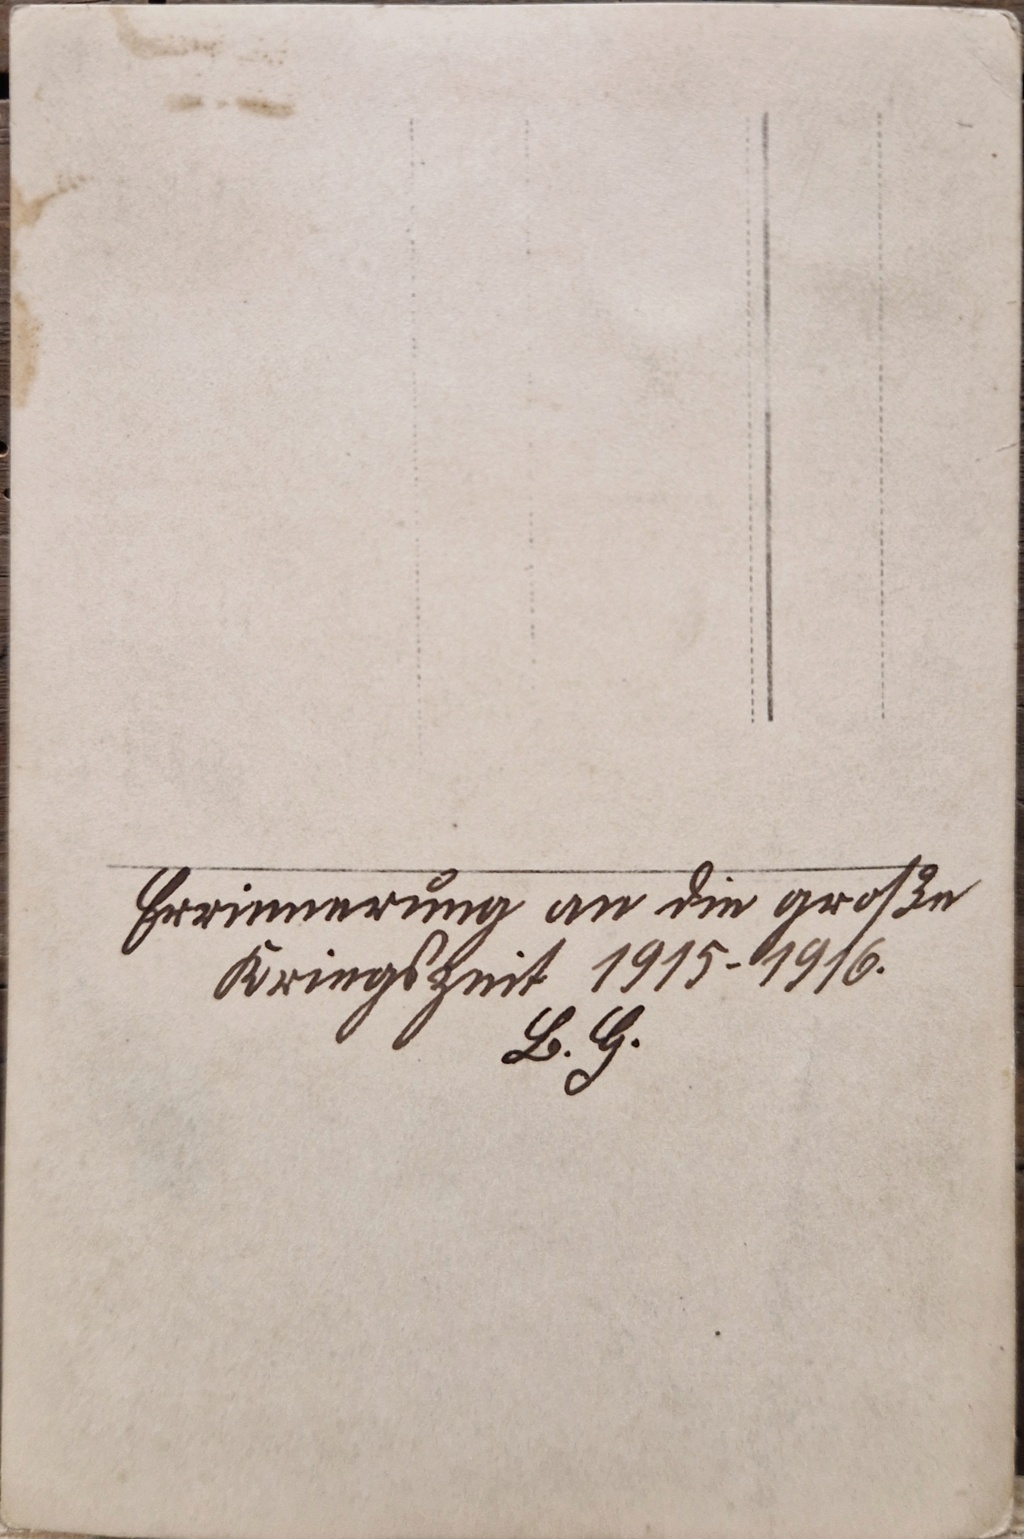 Errinnerung an die große
Kriegszeit 1915-1916.
L. G.